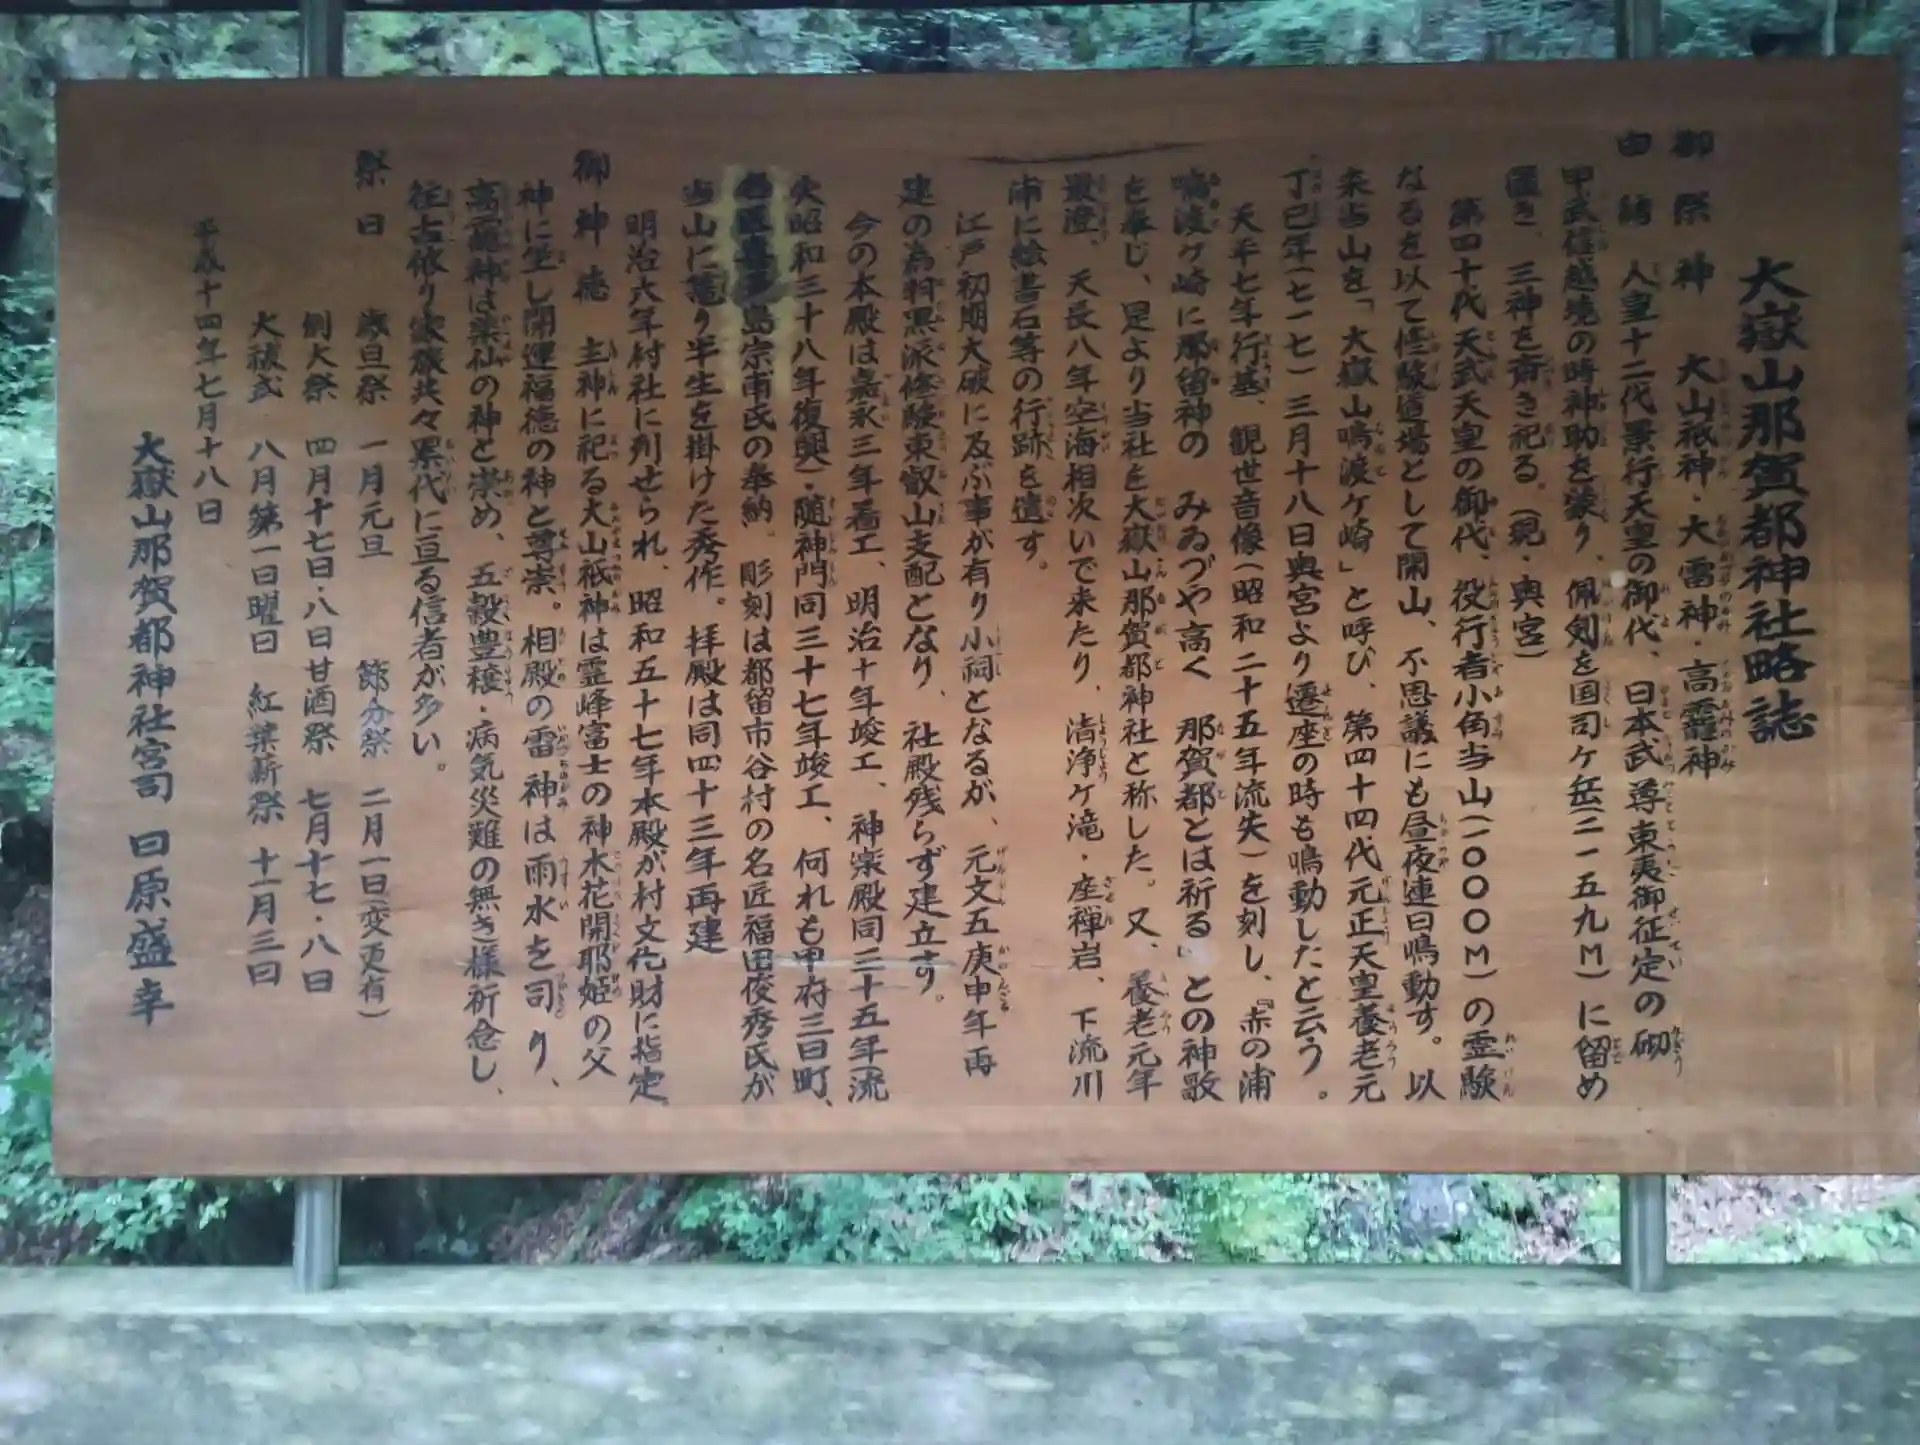 大嶽山那賀都神社略誌
御祭神 大山祇神・大雷神・高龗神
由緒 人皇十二代景行天皇の御代、日本武尊東夷御征定の砌
甲武信越境の時神助を蒙り、佩剣を国司ヶ岳二一五九M)に留め
置き、三神を斎き祀る。(現・奥宮)
第四十代天武天皇の御代、役行者小角当山(一〇〇〇M)の霊験
なるを以て修験道場として開山、不思議にも昼夜連日鳴動す。以
来当山を「大嶽山鳴渡ヶ崎」と呼び、第四十四代元正天皇養老元
丁巳年(七一七)三月十八日奥宮より遷座の時も鳴動したと云う。
天平七年行基、観世音像(昭和二十五年流失)を刻し、『赤の浦
鳴渡ヶ崎に那留神の みゐづや高く 那賀都とは祈る』との神歌
を奉じ、是より当社を大嶽山那賀都神社と称した。又、養老元年
最澄、天長八年空海相次いで来たり、清浄ヶ滝・座禅岩、下流川
浦に絵書石等の行跡を遺す。
江戸初期大破に及ぶ事が有り小祠となるが、元文五庚申年再
建の為羽黒派修験東叡山支配となり、社殿残らず建立す。
今の本殿は嘉永三年着工、明治十年竣工、神楽殿同三十五年(流
失昭和三十八年復興)・随神門同三十七年竣工、何れも甲府三日町、
島宗甫氏の奉納。彫刻は都留市谷村の名匠福田俊秀氏が
当山に篭り半生を掛けた秀作。拝殿は同四十三年再建
明治六年村社に列せられ、昭和五十七年本殿が村文化財に指定。
御神徳 主神に祀る大山祇神は霊峰富士の神木花開耶姫の父
神に坐し開運福徳の神と尊崇。相殿の雷神は雨水を司り、
高龗神は薬仙の神と崇め、五穀豊穣・病気災難の無き様祈念し、
往古依り家族共々累代に亘る信者が多い。
祭日 歳旦祭 一月元旦 節分祭 二月一日(変更有)
例大祭 四月十七日・八日甘酒祭 七月十七・八日
大祓式 八月第一日曜日 紅葉薪祭 十一月三日
平成十四年七月十八日
大嶽山那賀都神社宮司 日原盛幸